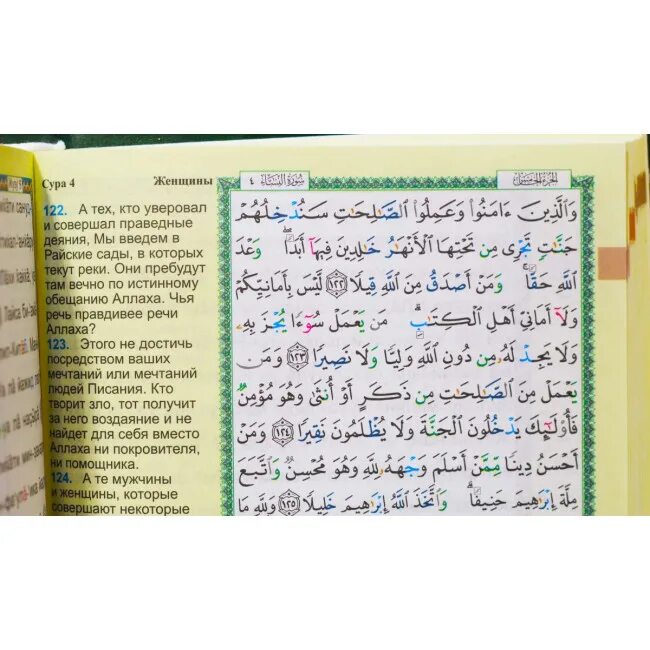 Сура 4 Женщины
122. А тех, кто уверовал
и совершал праведные
деяния, Мы введем в
Райские сады, в которых
текут реки. Они пребудут
там вечно по истинному
обещанию Аллаха. Чья
речь правдивее речи
Аллаха?
123. Этого не достичь
посредством ваших
мечтаний или мечтаний
людей Писания. Кто
творит зло, тот получит
за него воздаяние и не
найдет для себя вместо
Аллаха ни покровителя,
ни помощника.
124. А те мужчины
и женщины, которые
совершают некоторые
٤ سُورَةُ النِّسَاءِ الجزء الخامس
وَالَّذِينَ ءَامَنُوا وَعَمِلُوا الصَّـٰلِحَـٰتِ سَنُدْخِلُهُمْ
جَنَّـٰتٍ تَجْرِى مِن تَحْتِهَا الْأَنْهَـٰرُ خَـٰلِدِينَ فِيهَآ أَبَدًا ۖ وَعْدَ
اللَّهِ حَقًّا ۚ وَمَنْ أَصْدَقُ مِنَ اللَّهِ قِيلًا ١٢٢ لَّيْسَ بِأَمَانِيِّكُمْ
وَلَآ أَمَانِىِّ أَهْلِ الْكِتَـٰبِ ۗ مَن يَعْمَلْ سُوٓءًا يُجْزَ بِهِۦ
وَلَا يَجِدْ لَهُۥ مِن دُونِ اللَّهِ وَلِيًّا وَلَا نَصِيرًا ١٢٣ وَمَن
يَعْمَلْ مِنَ الصَّـٰلِحَـٰتِ مِن ذَكَرٍ أَوْ أُنثَىٰ وَهُوَ مُؤْمِنٌ
فَأُولَـٰٓئِكَ يَدْخُلُونَ الْجَنَّةَ وَلَا يُظْلَمُونَ نَقِيرًا ١٢٤ وَمَنْ
أَحْسَنُ دِينًا مِّمَّنْ أَسْلَمَ وَجْهَهُۥ لِلَّهِ وَهُوَ مُحْسِنٌ وَاتَّبَعَ
مِلَّةَ إِبْرَٰهِيمَ حَنِيفًا ۗ وَاتَّخَذَ اللَّهُ إِبْرَٰهِيمَ خَلِيلًا ١٢٥ وَلِلَّهِ مَا